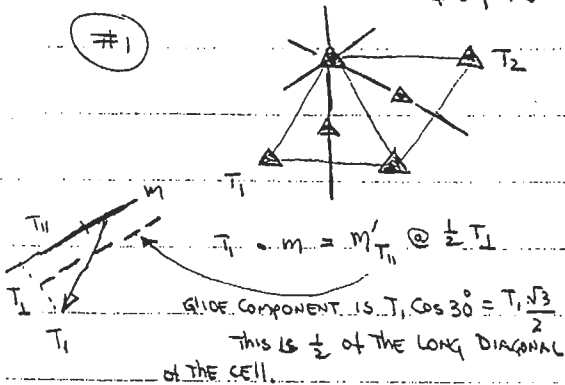 #1
T2
T1
m
T||
T1 • m = m'T|| @ 1/2 T⊥
T⊥
T1
GLIDE COMPONENT IS T1 COS 30° = T1 √3/2
THIS IS 1/2 of THE LONG DIAGONAL
of THE CELL.